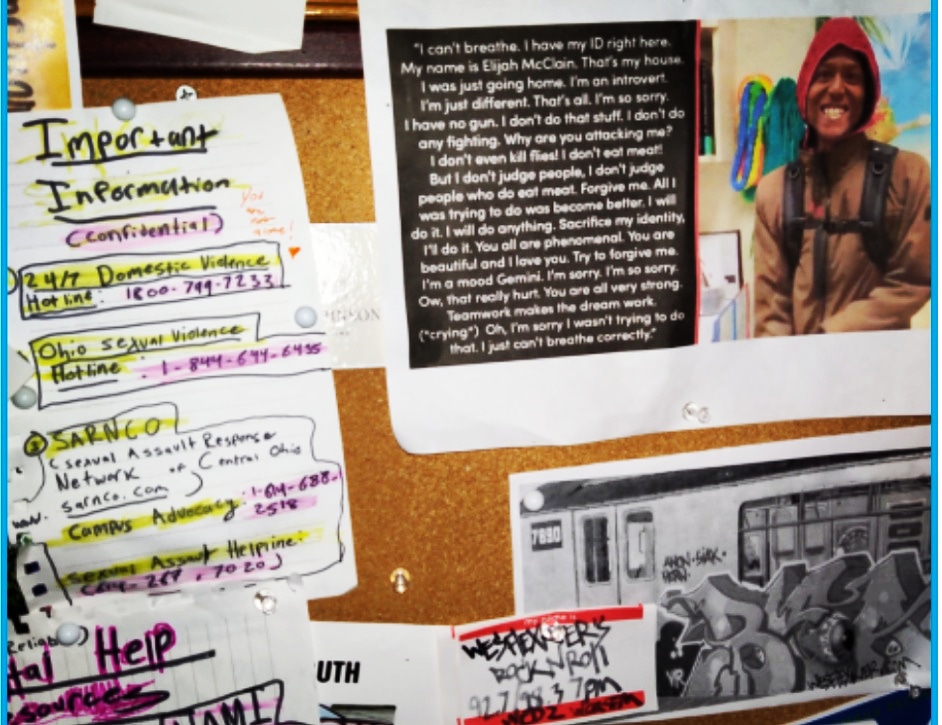 Important
Information
(confidential)
you
are
not
alone!
24/7 Domestic Violence
Hotline: 1800-799-7233
Ohio sexual Violence
Hotline: 1-844-644-6435
SARNCO
(sexual Assault Response
Network of Central Ohio
sarnco.com)
www.
Campus Advocacy: 1-614-688-
2518
Sexual Assault Helpline:
(614-267-7020)
Help
NAMI
"I can't breathe. I have my ID right here.
My name is Elijah McClain. That's my house.
I was just going home. I'm an introvert.
I'm just different. That's all. I'm so sorry.
I have no gun. I don't do that stuff. I don't do
any fighting. Why are you attacking me?
I don't even kill flies! I don't eat meat!
But I don't judge people, I don't judge
people who do eat meat. Forgive me. All I
was trying to do was become better. I will
do it. I will do anything. Sacrifice my identity,
I'll do it. You all are phenomenal. You are
beautiful and I love you. Try to forgive me.
I'm a mood Gemini. I'm sorry. I'm so sorry.
Ow, that really hurt. You are all very strong.
Teamwork makes the dream work.
(*crying*) Oh, I'm sorry I wasn't trying to do
that. I just can't breathe correctly."
7890
UTH
ROCK N ROLL
92.7/98.3 7PM